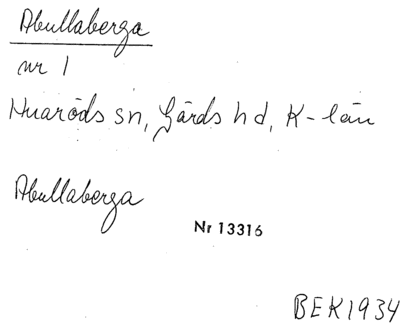 Abullaberga
nr 1
Huaröds sn, Gärds hd, K-län
Abullaberga
Nr 13316
BEK1934